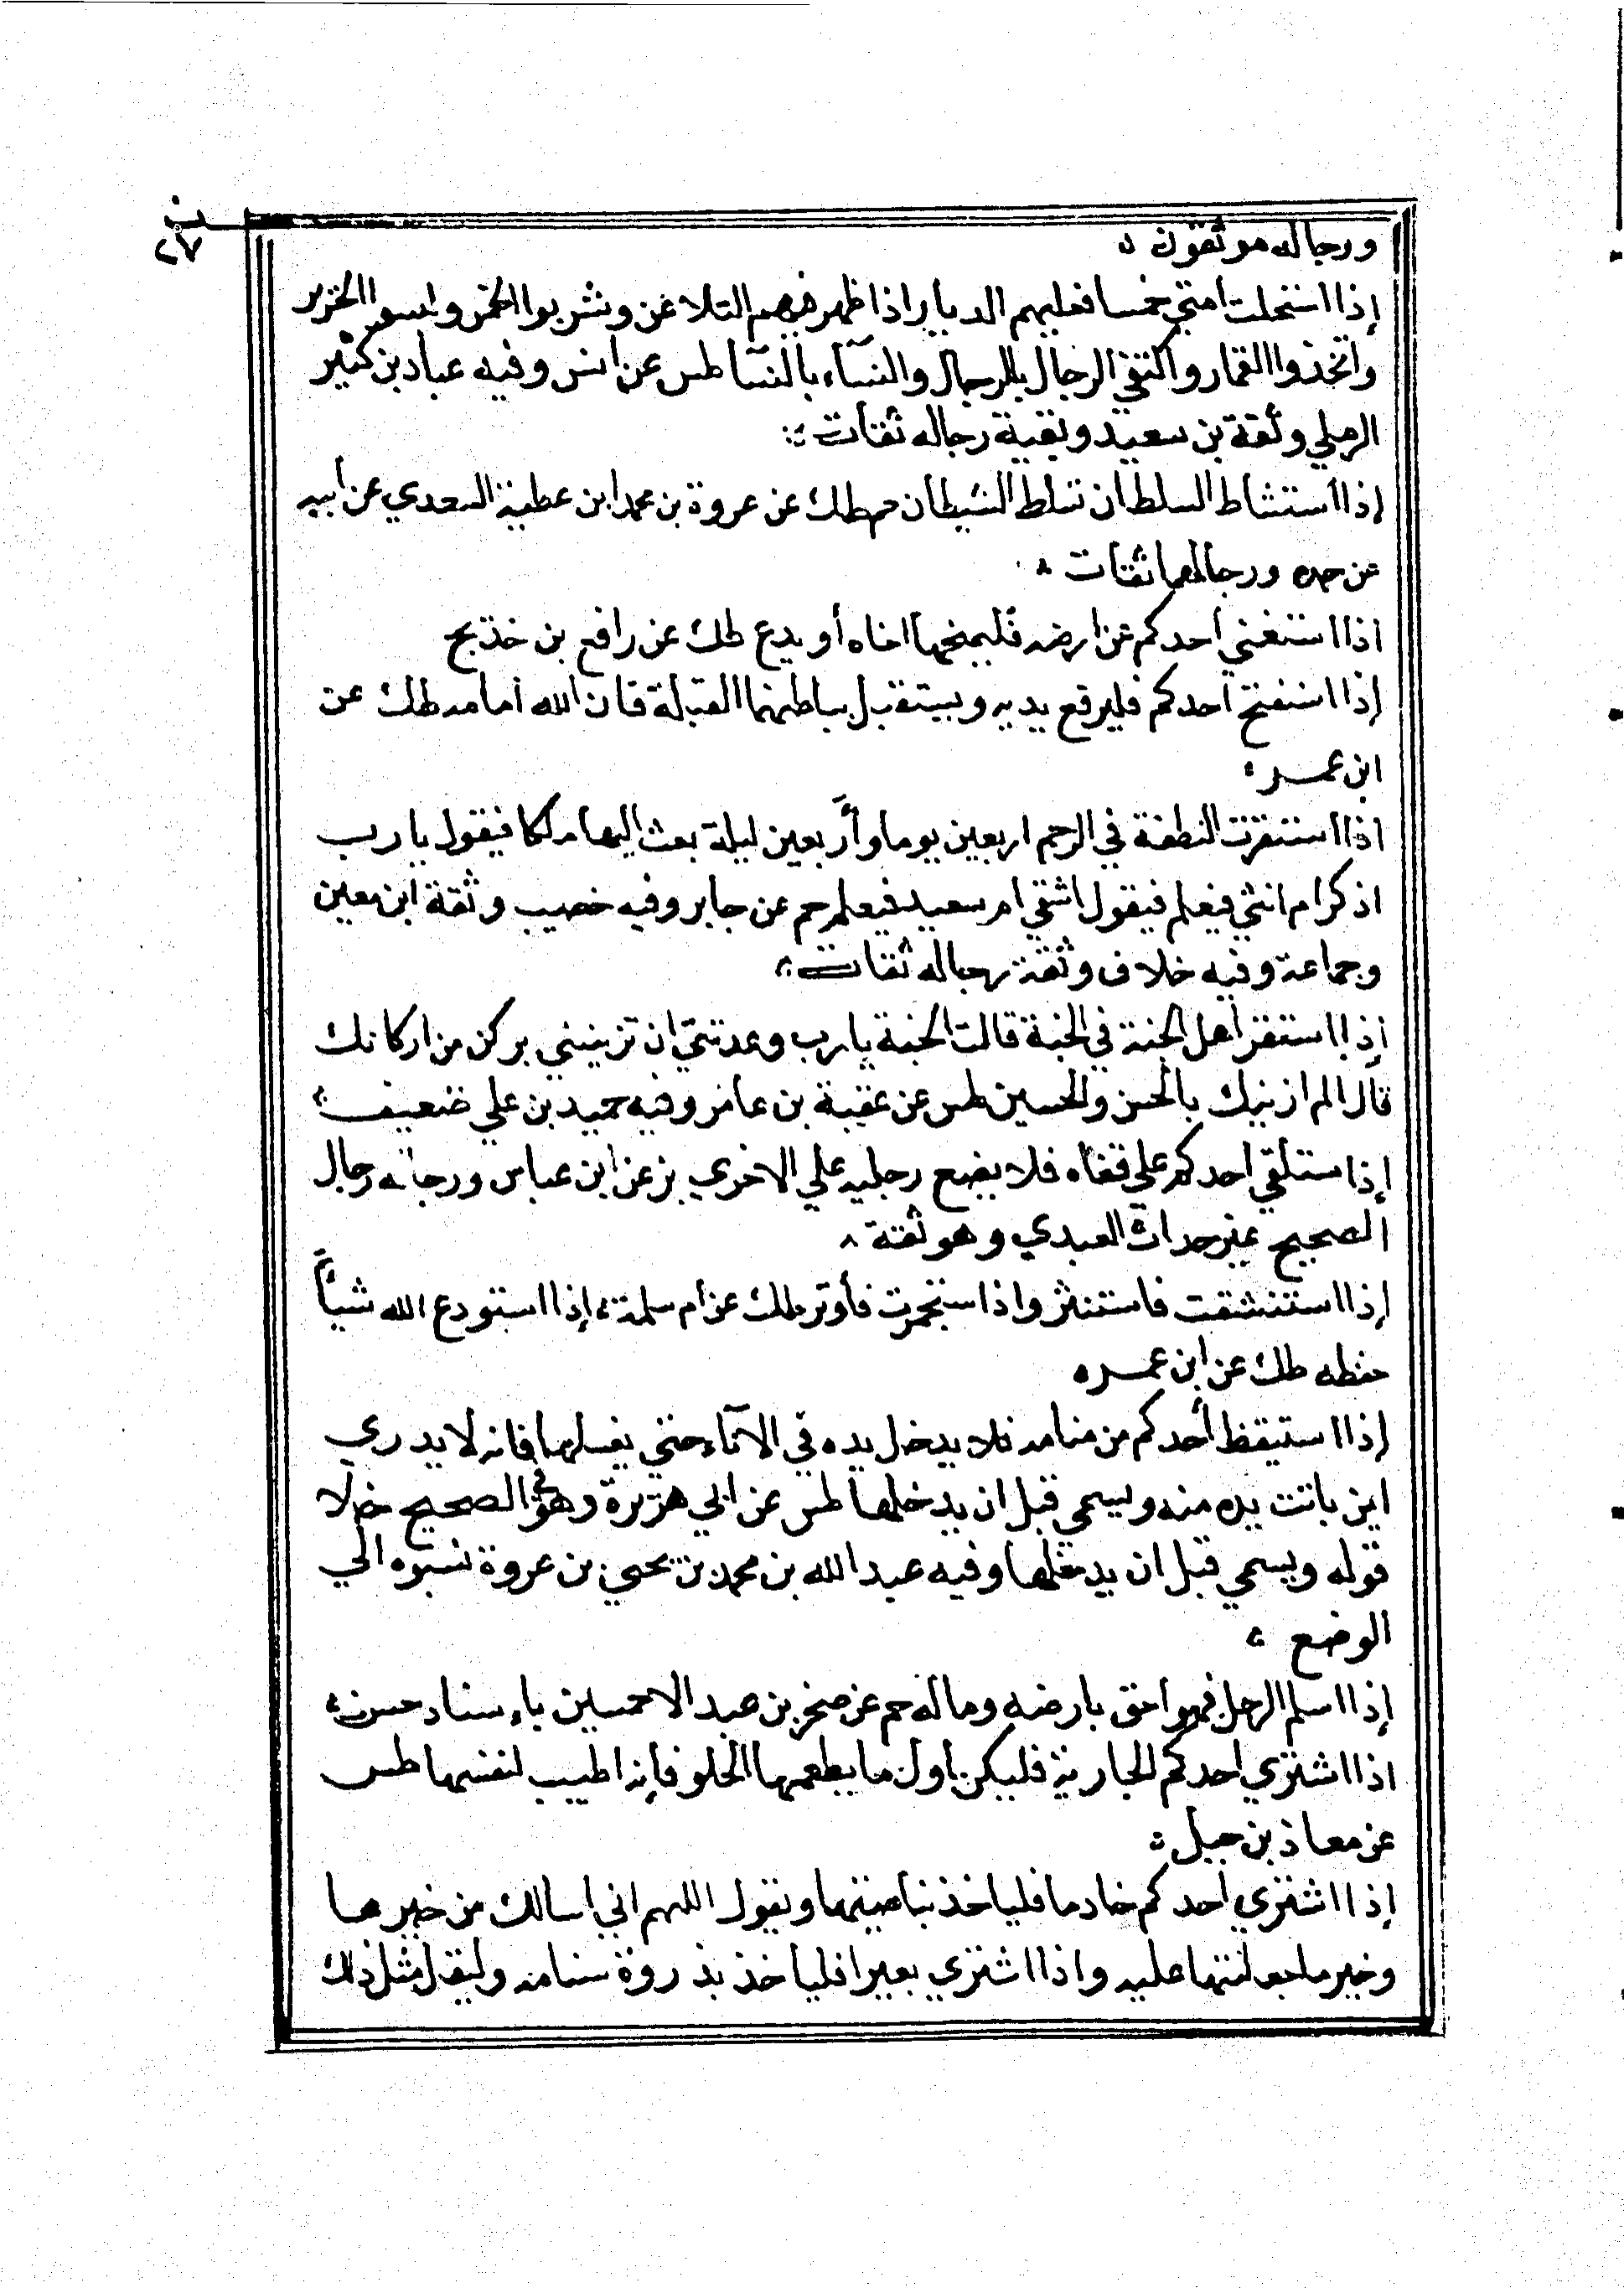 ٢٧
ورجاله موثقون
إذا استحلت امتي خمسا فعليهم الدبار إذا ظهر فيهم التلاعن وشربوا الخمر ولبسوا الحرير
واتخذوا القمار واكتفي الرجال بالرجال والنسآء بالنسآ طس عن انس وفيه عباد بن كثير
الرملي وثقة بن سعيد وبقية رجاله ثقات
إذا استشاط السلطان تسلط الشيطان حم طك عن عروة بن محمد ابن عطية السعدي عن أبيه
عن جده ورجالهما ثقات
اذا استغني احدكم عن ارضه فليمنحها اخاه أو يدع طك عن رافع بن خذيج
إذا استفتح احدكم فليرفع يديه ويستقبل بباطنهما القبلة فان الله أمامه طك عن
ابن عمر
اذا استقرت النطفة في الرحم اربعين يوما وأربعين ليلة بعث اليها ملكا فيقول يا رب
اذكر ام انثي فيعلم فيقول اشقي ام سعيد فيعلم حم عن جابر وفيه خصيب وثقة ابن معين
وجماعة وفيه خلاف وثقة رجاله ثقات
إذا استقر أهل الجنة في الجنة قالت الجنة يا رب وعدتني ان تزينني بركن من اركانك
قال الم ازينك بالحسن والحسين طس عن عقبة بن عامر وفيه حميد بن علي ضعيف
إذا ستلقي احدكم علي قفاه فلا يضع رجليه علي الاخري بز عن ابن عباس ورجاله رجال
الصحيح غير حداث العبدي وهو ثقة
إذا استنشقت فاستنثر واذا ستجمرت فأوتر طك عن أم سلمة إذا استودع الله شيأً
حفظه طك عن ابن عمر
إذا استيقظ أحدكم من منامه فلا يدخل يده في الآناء حتي يغسلها فانه لا يدري
اين باتت يده منه ويسمي قبل ان يدخلها طس عن ابي هريرة وهو في الصحيح خلا
قوله ويسمي قبل ان يدخلها وفيه عبد الله بن محمد بن يحيي بن عروة نسبوه الي
الوضع
إذا اسلم الرجل فهو احق بارضه وماله حم عن صخر بن عبد الاحمسين بإسناد حسن
اذا اشتري احدكم الجارية فليكن أول ما يطعمها الحلو فإنه اطيب لنفسها طس
عن معاذ بن جبل
إذا اشتري احدكم خادما فلياخذ بناصيتها ويقول اللهم اني اسالك من خيرها
وخير ما جعلتها عليه واذا اشتري بعيرا فلياخذ بذروة سنامه وليقل مثل ذلك